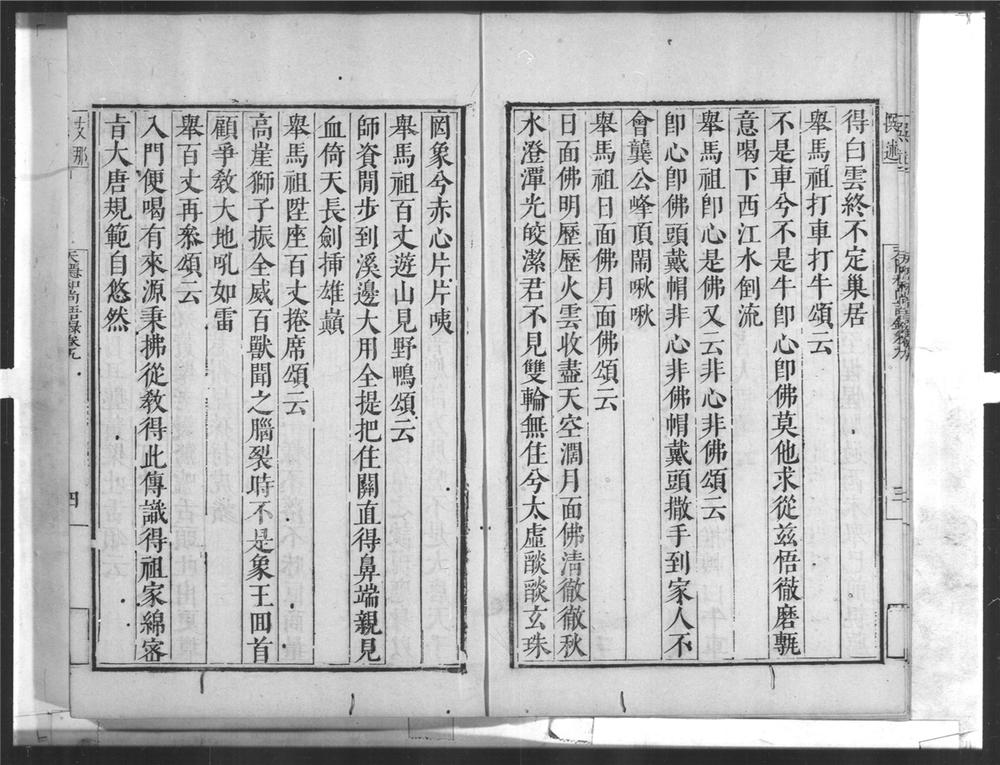 得白雲終不定巢居
舉馬祖打車打牛頌云
不是車兮不是牛卽心卽佛莫他求從茲悟徹磨甎
意喝下西江水倒流
舉馬祖卽心是佛又云非心非佛頌云
卽心卽佛頭戴帽非心非佛帽戴頭撒手到家人不
會龔公峰頂鬧啾啾
舉馬祖日面佛月面佛頌云
日面佛明歷歷火雲收盡天空濶月面佛清徹徹秋
水澄潭光皎潔君不見雙輪無住兮太虛談談玄珠
三
罔象兮赤心片片片咦
舉馬祖百丈遊山見野鴨頌云
師資閒步到溪邊大用全提把住關直得鼻端親見
血倚天長劍揷雄巔
舉馬祖陞座百丈捲席頌云
高崖獅子振全威百獸聞之腦裂時不是象王回首
顧爭敎大地吼如雷
舉百丈再叅頌云
入門便喝有來源秉拂從敎得此傳識得祖家綿密
肯大唐規範自悠然
天隱和尚語錄卷九
四